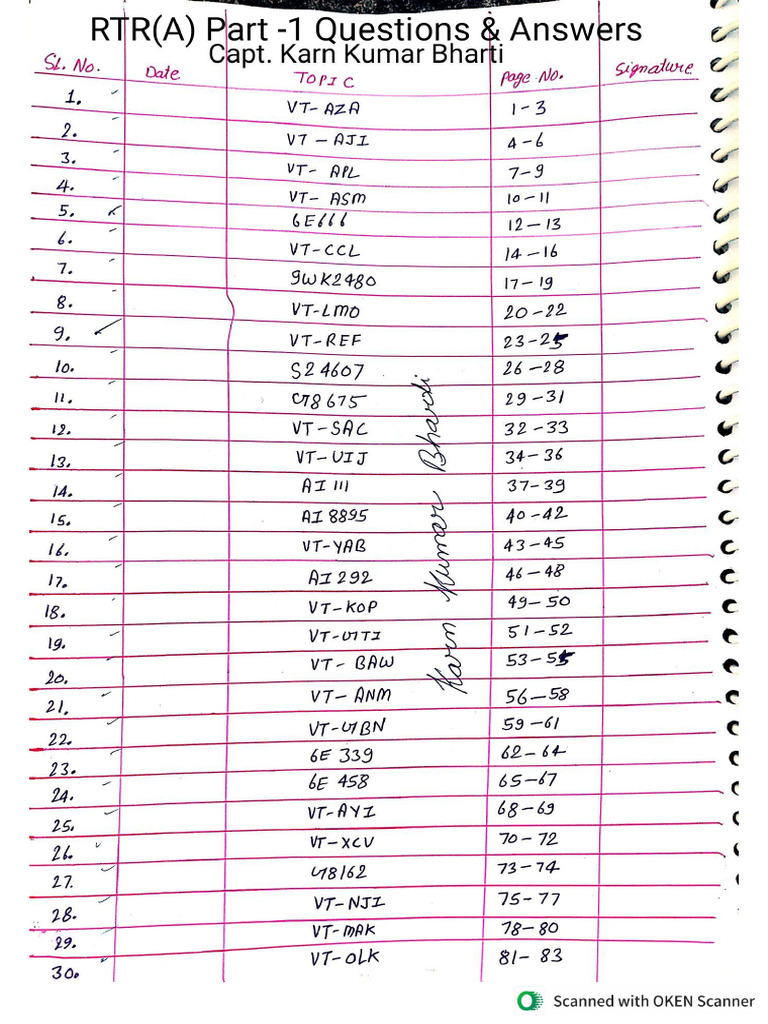 RTR(A) Part -1 Questions & Answers
Capt. Karn Kumar Bharti
Sl. No. Date TOPIC Page No. Signature
1. VT-AZA 1-3
2. VT-AJI 4-6
3. VT-APL 7-9
4. VT-ASM 10-11
5. 6E666 12-13
6. VT-CCL 14-16
7. 9WK2480 17-19
8. VT-LMO 20-22
9. VT-REF 23-25
10. S24607 26-28
11. G8675 29-31
12. VT-SAC 32-33
13. VT-UIJ 34-36
14. AI 111 37-39
15. AI 8895 40-42
16. VT-YAB 43-45
17. AI 292 46-48
18. VT-KOP 49-50
19. VT-GTI 51-52
20. VT-BAW 53-55
21. VT-ANM 56-58
22. VT-GBN 59-61
23. 6E 339 62-64
24. 6E 458 65-67
25. VT-AYI 68-69
26. VT-XCV 70-72
27. G8162 73-74
28. VT-NJI 75-77
29. VT-MAK 78-80
30. VT-OLK 81-83
Karn Kumar Bharti
Scanned with OKEN Scanner